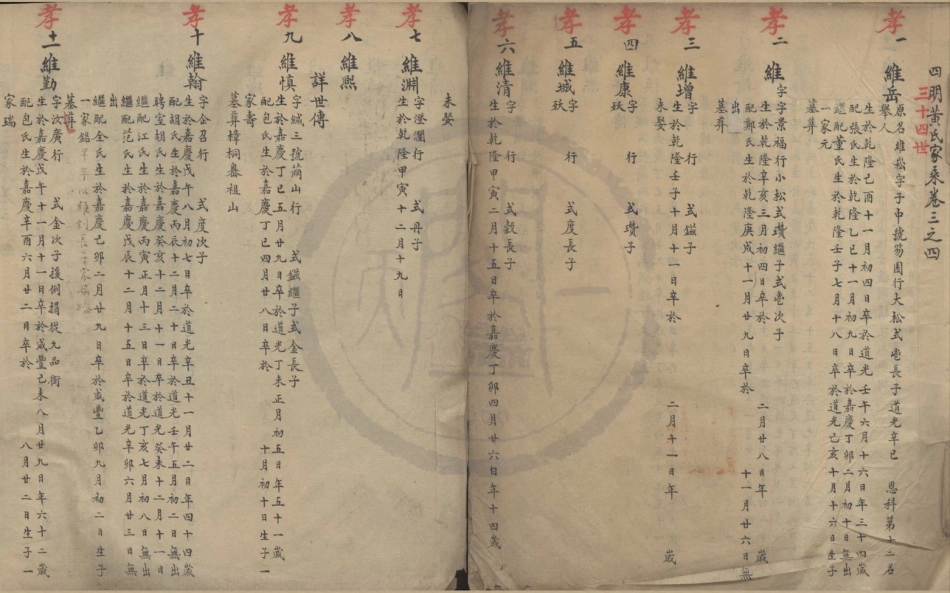 四明黃氏家乘卷三之四
三十四世
孝一 維岳
原名維崧字子申號笏圃行大松式壺長子道光辛巳 恩科第十二名
舉人
生於乾隆己酉十一月初四日卒於道光壬午六月十六日年三十四歲
配張氏生於乾隆乙巳十一月初九日卒於嘉慶丁卯二月初十日無出
繼配童氏生於乾隆壬子七月十八日卒於道光己亥十月十六日生子
一家元
墓葬
二 維
字景福行小松式瓚繼子式壺次子
生於乾隆辛亥三月初四日卒於 二月廿八日年 歲
配鄭氏生於乾隆庚戌十一月廿九日卒於 十一月廿六日無
出
墓葬
孝三 維增
字 行 式鎰子
生於乾隆壬子十月十一日卒於 二月十一日年 歲
未娶
孝四 維康
字 行 式瓚子
孝五 維城
字 行 式度長子
孝六 維清
字 行 式毅長子
生於乾隆甲寅二月十五日卒於嘉慶丁卯四月廿六日年十四歲
未娶
孝七 維淵
字澄瀾行 式丹子
生於乾隆甲寅十二月十九日
孝八 維熙
詳世傳
孝九 維慎
字緘三號蘭山行 式鎰繼子式金長子
生於嘉慶丁巳五月廿九日卒於道光丁未正月初五日年五十一歲
配包氏生於嘉慶丁巳四月廿八日卒於 十月初十日生子一
家壽
墓葬樟桐畚祖山
孝十 維翰
字念召行 式度次子
生於嘉慶戊午八月初七日卒於道光辛丑十一月廿二日年四十四歲
配胡氏生於嘉慶丙辰十二月二十日卒於道光壬午五月初二日無出
聘室胡氏生於嘉慶癸亥十二月十一日卒於道光癸未十二月十一日
繼配江氏生於嘉慶丙寅正月十三日卒於道光丁亥七月初八日無出
繼配范氏生於嘉慶戊辰十二月十五日卒於道光辛卯六月廿三日無
出
繼配全氏生於嘉慶己卯二月廿九日卒於咸豐乙卯九月初二日生子
一家銘
墓葬
孝十一 維勤
字汝廣行 式金次子後例捐從九品銜
生於嘉慶戊午十一月十一日卒於咸豐己未八月廿九日年六十二歲
配包氏生於嘉慶辛酉六月廿二日卒於 八月廿二日生子一
家瑞